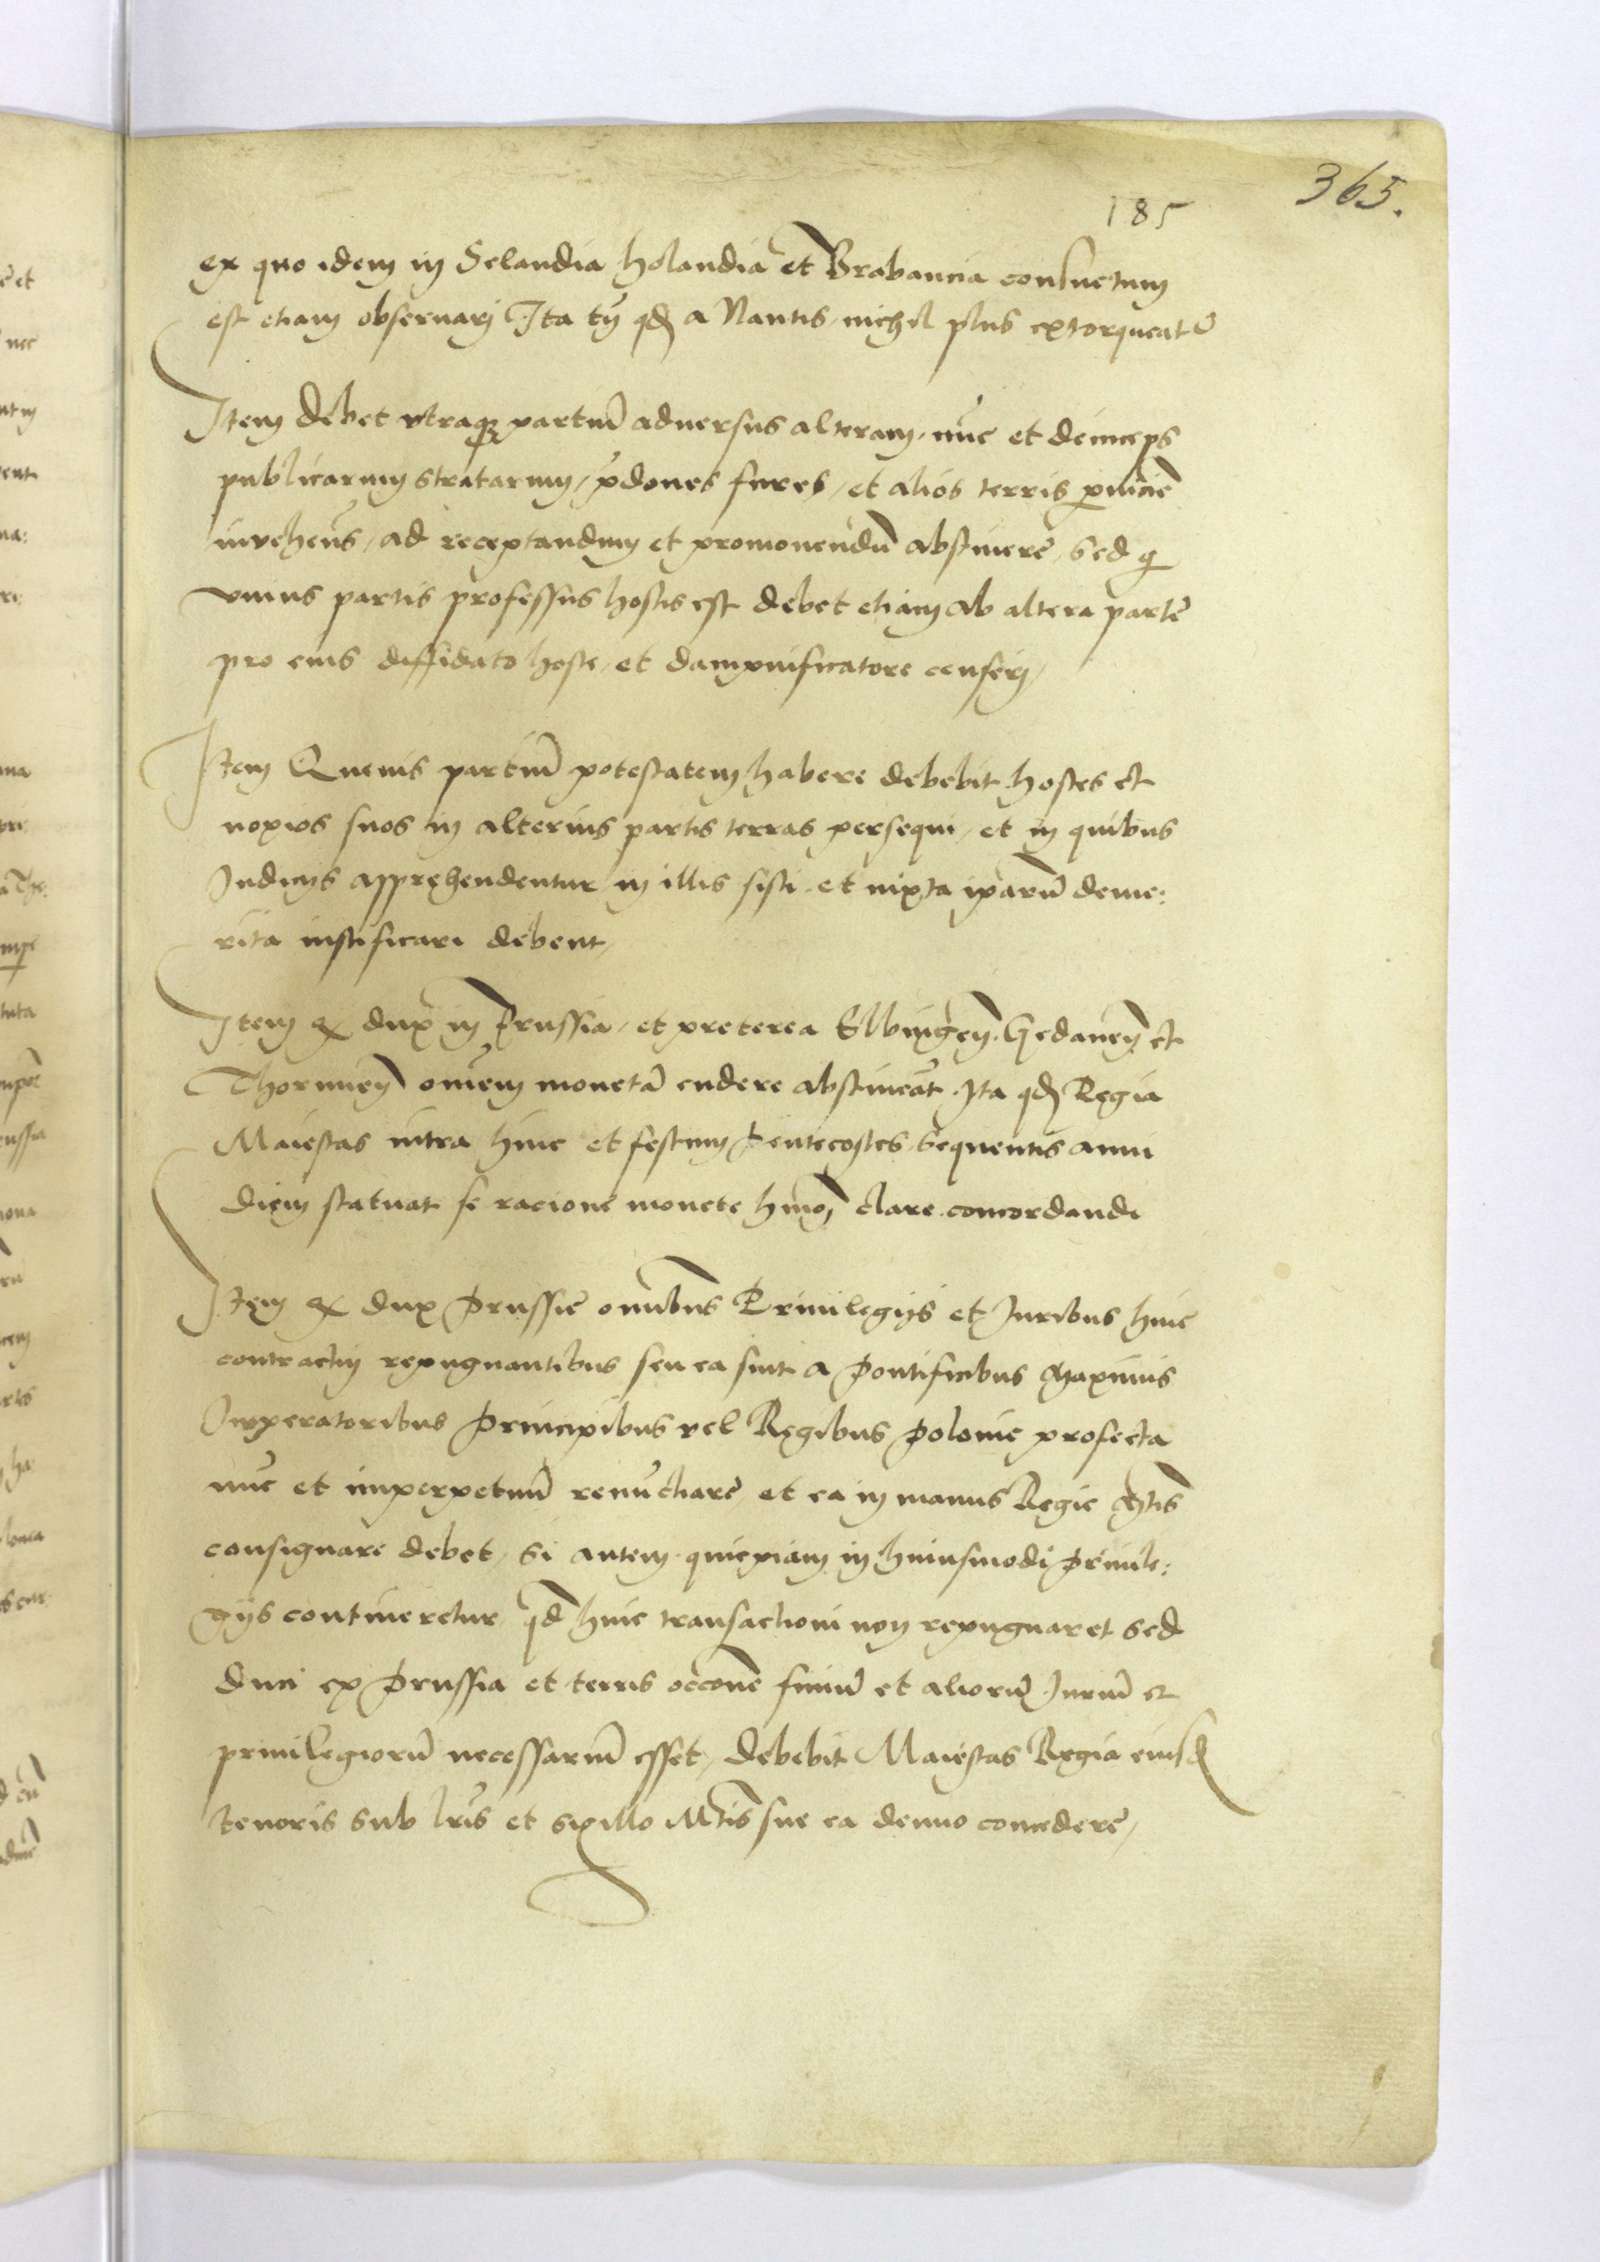 365.
185
ex quo idem in Selandia Holandia et Brabancia consuetum
est etiam obseruarj Ita tn̄ qđ a Nautis nichil plus extorqueatᵘ
Item debet vtraqꝫ partiū aduersus alteram nūc et deinceps
publicarum stratarum p̄dones fures et alios terris ꝑnicie
inuehen̄s ad receptandum et promouendū abstinere, sed qi
vnius partis professus hostis est debet etiam ab altera parte
pro eius diffidato hoste et dampnificatore censerj
Item Queuis partiū potestatem habere debebit hostes et
noxios suos in alterius partis terras persequi et in quibus
Iudicijs apprehendentur in illis sisti et iuxta ipsarū deme:
rita iustificari debent
Item ꝙ dux in Prussia et preterea Elbingeñ Gedaneñ et
Thoruneñ omēm monetā cudere abstineāt Ita qđ Regia
Maiestas intra hinc et festum Pentecostes sequentis anni
diem statuat se racione monete hmōj clare concordandi
Item ꝙ dux Prussie omībus Priuilegijs et Juribus huic
contractuj repugnantibus seu ea sint a Pontificibus Maximis
Imperatoribus Principibus vel Regibus Polonie profecta
nūc et imperpetuū renūctiare et ea in manus Regie Mtis
consignare debet, Si autem quicpiam in huiusmodi Priuile:
gijs contineretur qđ huic transactioni non repugnaret sed
duci ex Prussia et terris occōne finiū et aliorū Juriū et
priuilegiorū necessariū esset, debebit Maiestas Regia eiusđ
tenoris sub lr̄is et sigillo Mtis sue ea denuo concedere